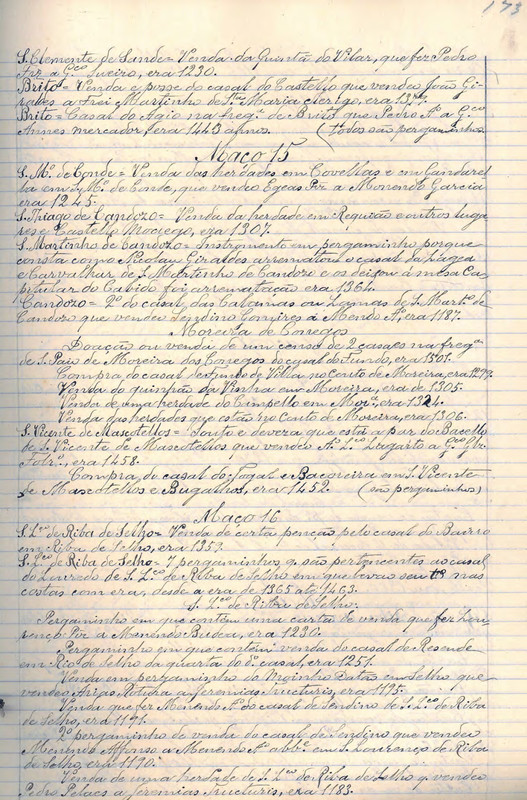 173
S. Clemente de Sande = Venda da Quintã do Vilar, que fez Pedro
Frz a Gco Sueiro, era 1230.
Brito = Venda e posse do casal do Castello que vendeu João Gi-
raldes a Frei Martinho de Sta Maria clerigo, era
Brito = Casal do Agio na fregª de Brito que Pedro Aº a Gco
Annes mercador, era 1443 annos. (Todos são pergaminhos)
Maço 15
S. Mª. de Conde = Venda das herdades em Covelhas e em Gandarel-
la em S. Mª. de Conde, que vendeo Egeas Frz a Monendo Garcia
era 1245.
S. Thiago de Candozo = Venda da herdade em Requião e outros luga-
res e Castello era 1207.
S. Martinho de Candozo = Instromento em pergaminho porque
consta como Nicolau Giraldes arrematou o casal da Lagea
e Carvalhas de S. Martinho de Candozo e os deixou á mesa Ca-
pitular do Cabido foi arrematação era 1364.
Candozo = 2º do casal das ou Lamas de S. Martº de
Candozo que vendeu a Mendo Aº, era 1187.
Moreira de Conegos
Doação ou venda de um censo de 2 casaes na fregª
de S. Paio de Moreira dos Conegos do casal do Fundo, era 1501.
Compra do casal de Fundo de Villa no couto de Moreira, era 1299.
Venda do quinhão da Vinha em Moreira, era de 1305.
Venda de uma herdade do Campello em Morª, era 1324.
Venda das herdades que estão no Couto de Moreira, era 1306.
S. Vicente de Mascotellos = Souto e deveza que está a par do Bacello
de S. Vicente de Mascotellos que vendeu Aº Lço Lagarto a Gco Glz
era 1458.
Compra do casal do Togal e Bacoreira em S. Vicente
de Mascotellos e Bugalhos, era 1452. (são pergaminhos)
Maço 16
S. Lço de Riba de Selho = Venda de certa penção pelo casal do Bairro
em Riba de Selho, era 1353.
S. Lço de Riba de Selho = 7 pergaminhos q são pertencentes ao casal
do Louredo de S. Lço de Riba de Selho em que levão seu nas
costas com era, desde a era de 1365 até 1463.
S. Lço de Riba de Selho.
Pergaminho em que contem uma carta de venda que fez Lou-
renço Frz a Menendo Budea, era 1230.
Pergaminho em que contem venda do casal de Resende
em Rio de Selho da quarta do dº casal, era 1251.
Venda em pergaminho do Moinho Datão em Selho que
vendeo Arias a Jeremias Tructuris, era 1195.
Venda que fez Menendo Aº do casal de Sendino de S. Lço de Riba
de Selho, era 1191.
2º pergaminho de venda do casal de Sendino que vendeu
Menendo Affonso a Menendo Aº em S. Lourenço de Riba
de Selho, era 1170.
Venda de uma herdade de S. Lço do Riba de Selho q vendeu
Pedro Pelaes a Jeremias Tructuris, era 1183.